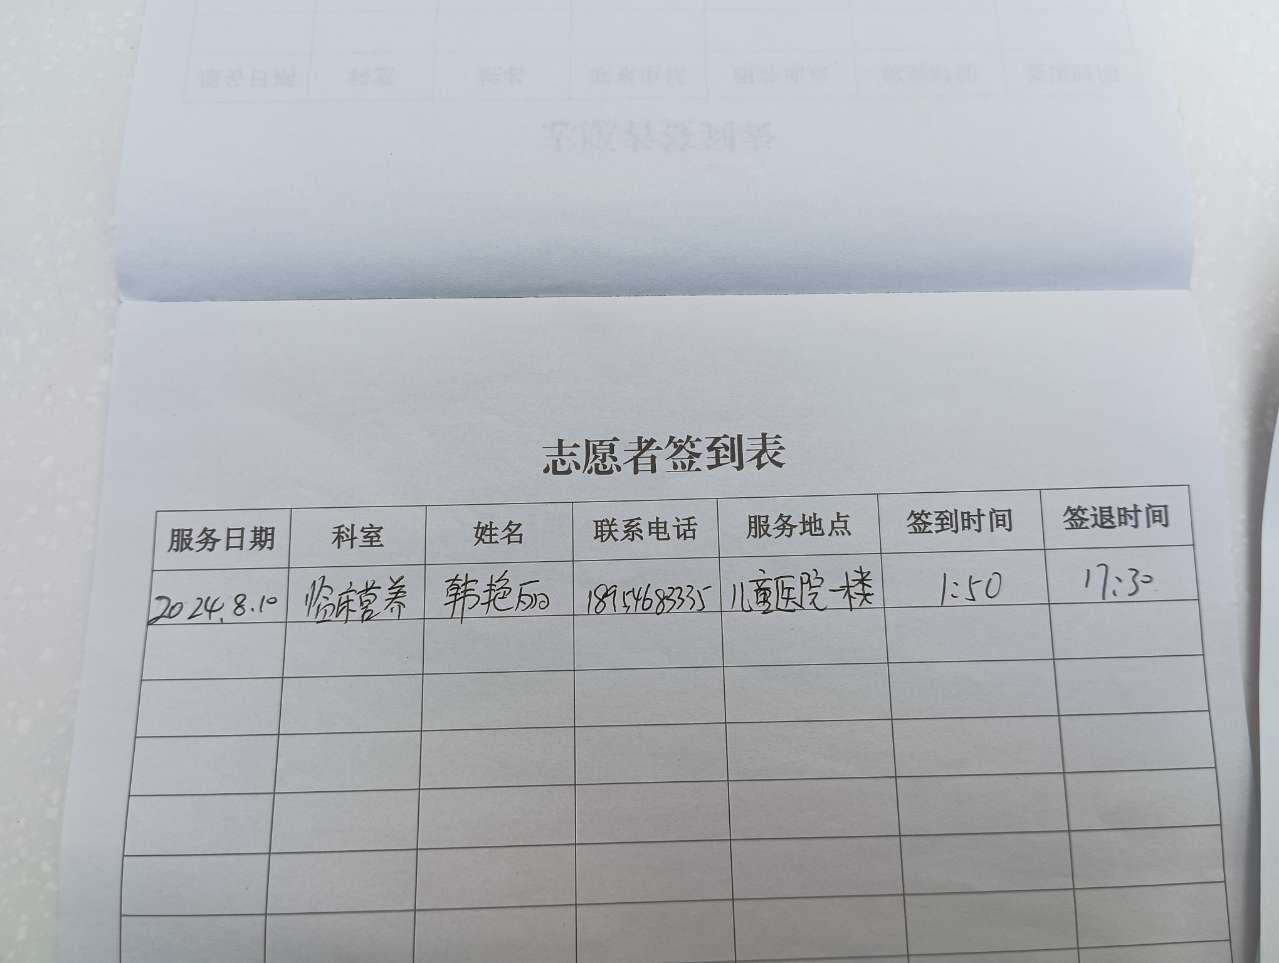 志愿者签到表
服务日期 科室 姓名 联系电话 服务地点 签到时间 签退时间
2024.8.10 临床营养 韩艳丽 18954683335 儿童医院一楼 1:50 17:30